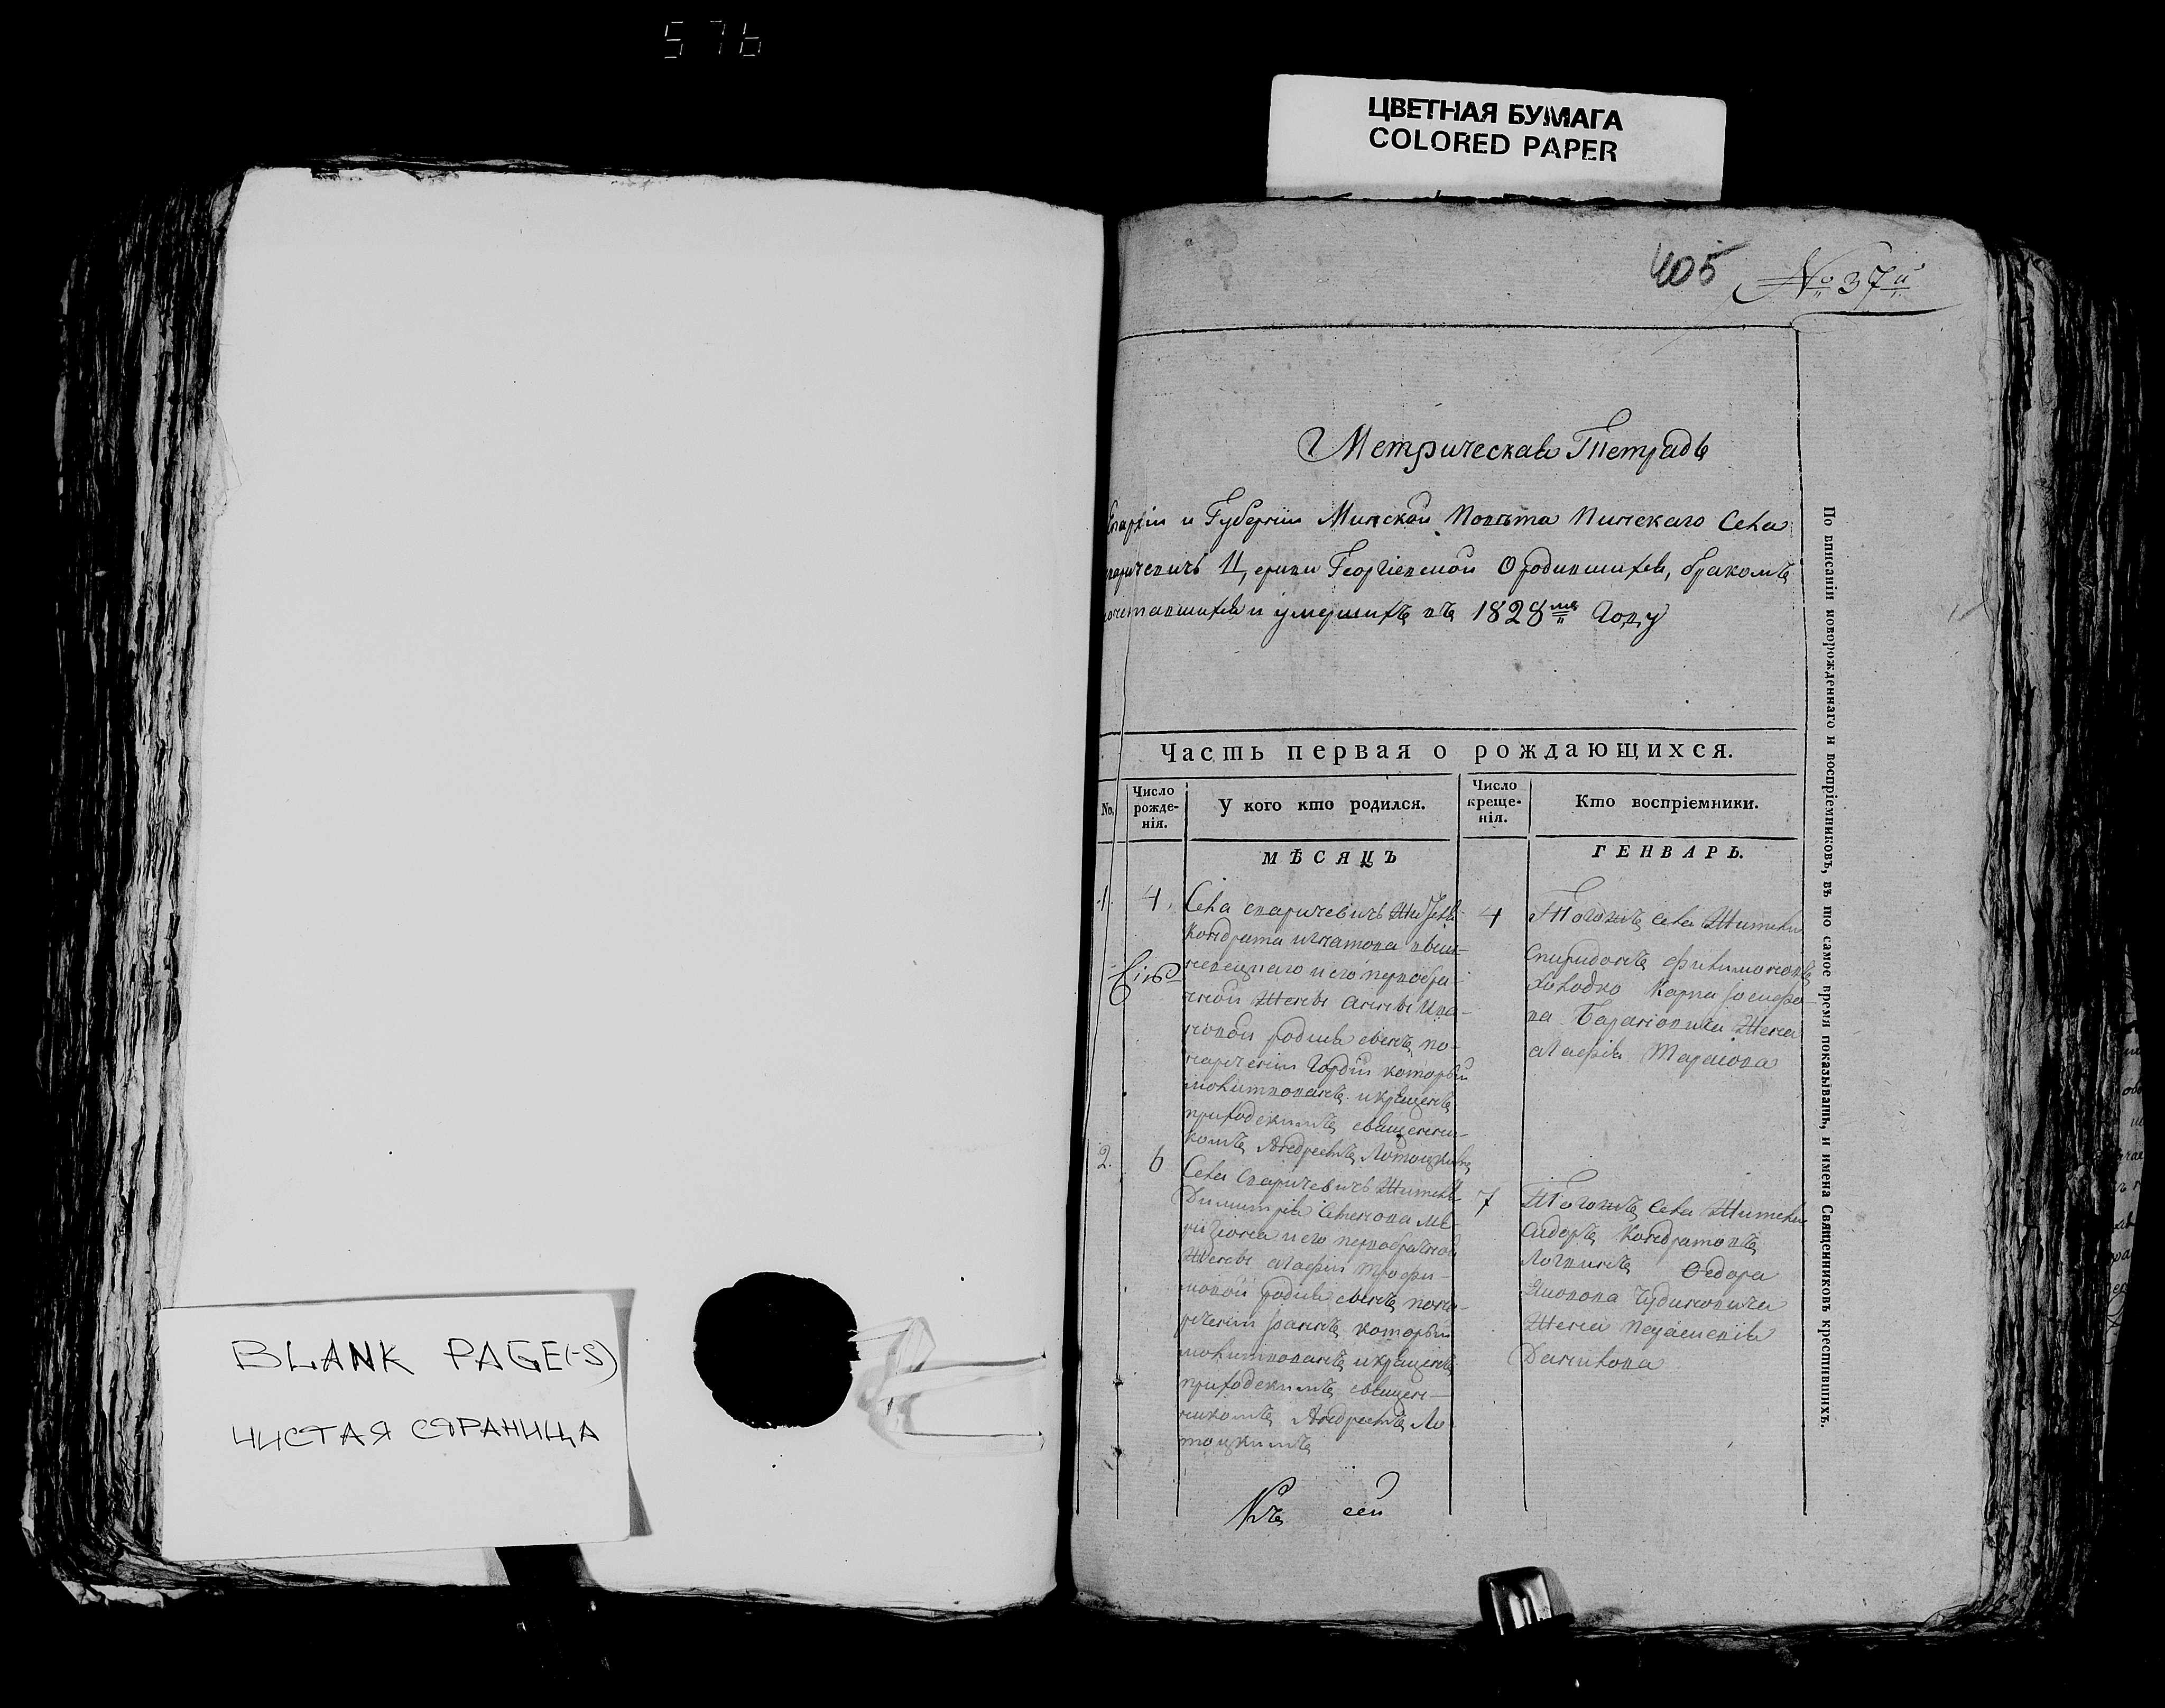 576
ЦВЕТНАЯ БУМАГА
COLORED PAPER
405
№ 37й
Метрическая Тетрадь
Епархіи и Губерніи Минской Повѣта Пинскаго Села
Церкви Георгіевской О родившихся, бракомъ
сочетавшихся и умершихъ въ 1828мъ Году
Часть первая о рождающихся.
No.
Число рожденія.
У кого кто родился.
Число крещенія.
Кто воспріемники.
МѢСЯЦЪ
ГЕНВАРЬ.
1.
4.
Села Спаричевичь Жителя
Кондрата Игнатова
и его первобра-
чной жены Анны Ива-
новой родился сынъ по
нареченіи Гордій который
молитвованъ и крещенъ
приходскимъ священни-
комъ Андреемъ Лотоцкимъ
4
Тогожъ села Житель
Спиридонъ Филимоновъ
Холодко Карпа
Жена
Агафія Тарасова
2.
6
Села Спаричевичь Жителя
Димитрія Семенова
и его первобрачной
жены Агафіи Трофи-
мовой родился сынъ по на-
реченіи Іоаннъ который
молитвованъ и крещенъ
приходскимъ священ-
никомъ Андреемъ Ло
тоцкимъ
7
Тогожъ села Житель
Сидоръ Кондратовъ
Логвинъ Федора
Жена
Данилова
Къ сей
По вписаніи новорожденнаго и воспріемниковъ, въ то самое время показывать, и имена Священниковъ крестившихъ.
BLANK PAGE(-S)
ЧИСТАЯ СТРАНИЦА